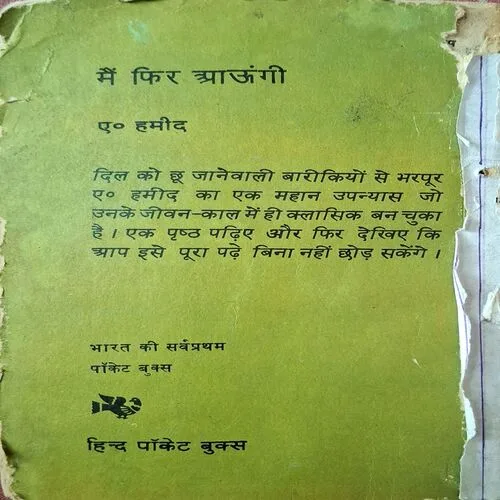 मैं फिर आऊंगी
ए० हमीद
दिल को छू जानेवाली बारीकियों से भरपूर
ए० हमीद का एक महान उपन्यास जो
उनके जीवन-काल में ही क्लासिक बन चुका
है । एक पृष्ठ पढ़िए और फिर देखिए कि
आप इसे पूरा पढ़े बिना नहीं छोड़ सकेंगे ।
भारत की सर्वप्रथम
पॉकेट बुक्स
हिन्द पॉकेट बुक्स